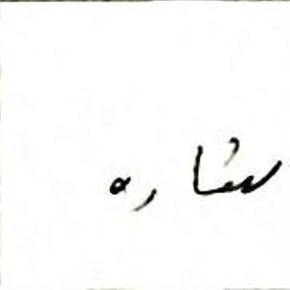 ستاره